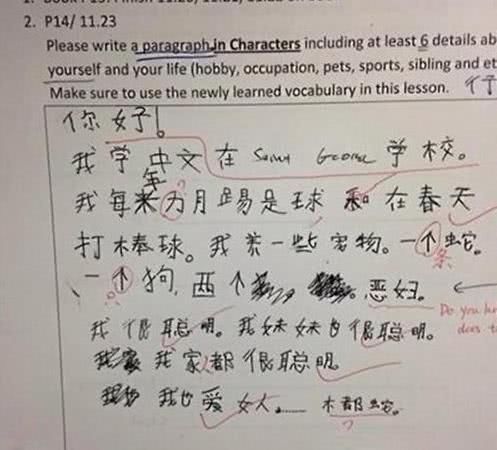 2. P14/ 11.23
Please write a paragraph in Characters including at least 6 details ab
yourself and your life (hobby, occupation, pets, sports, sibling and et
Make sure to use the newly learned vocabulary in this lesson.
你好!
我学中文在 George 学校。
我每年 月踢足球 和在春天
打棒球。我养一些宠物。一个蛇。
条
一个狗, 西个
我很聪明。我妹妹也很聪明。
我家都很聪明。
我也爱女人......
Do you
does